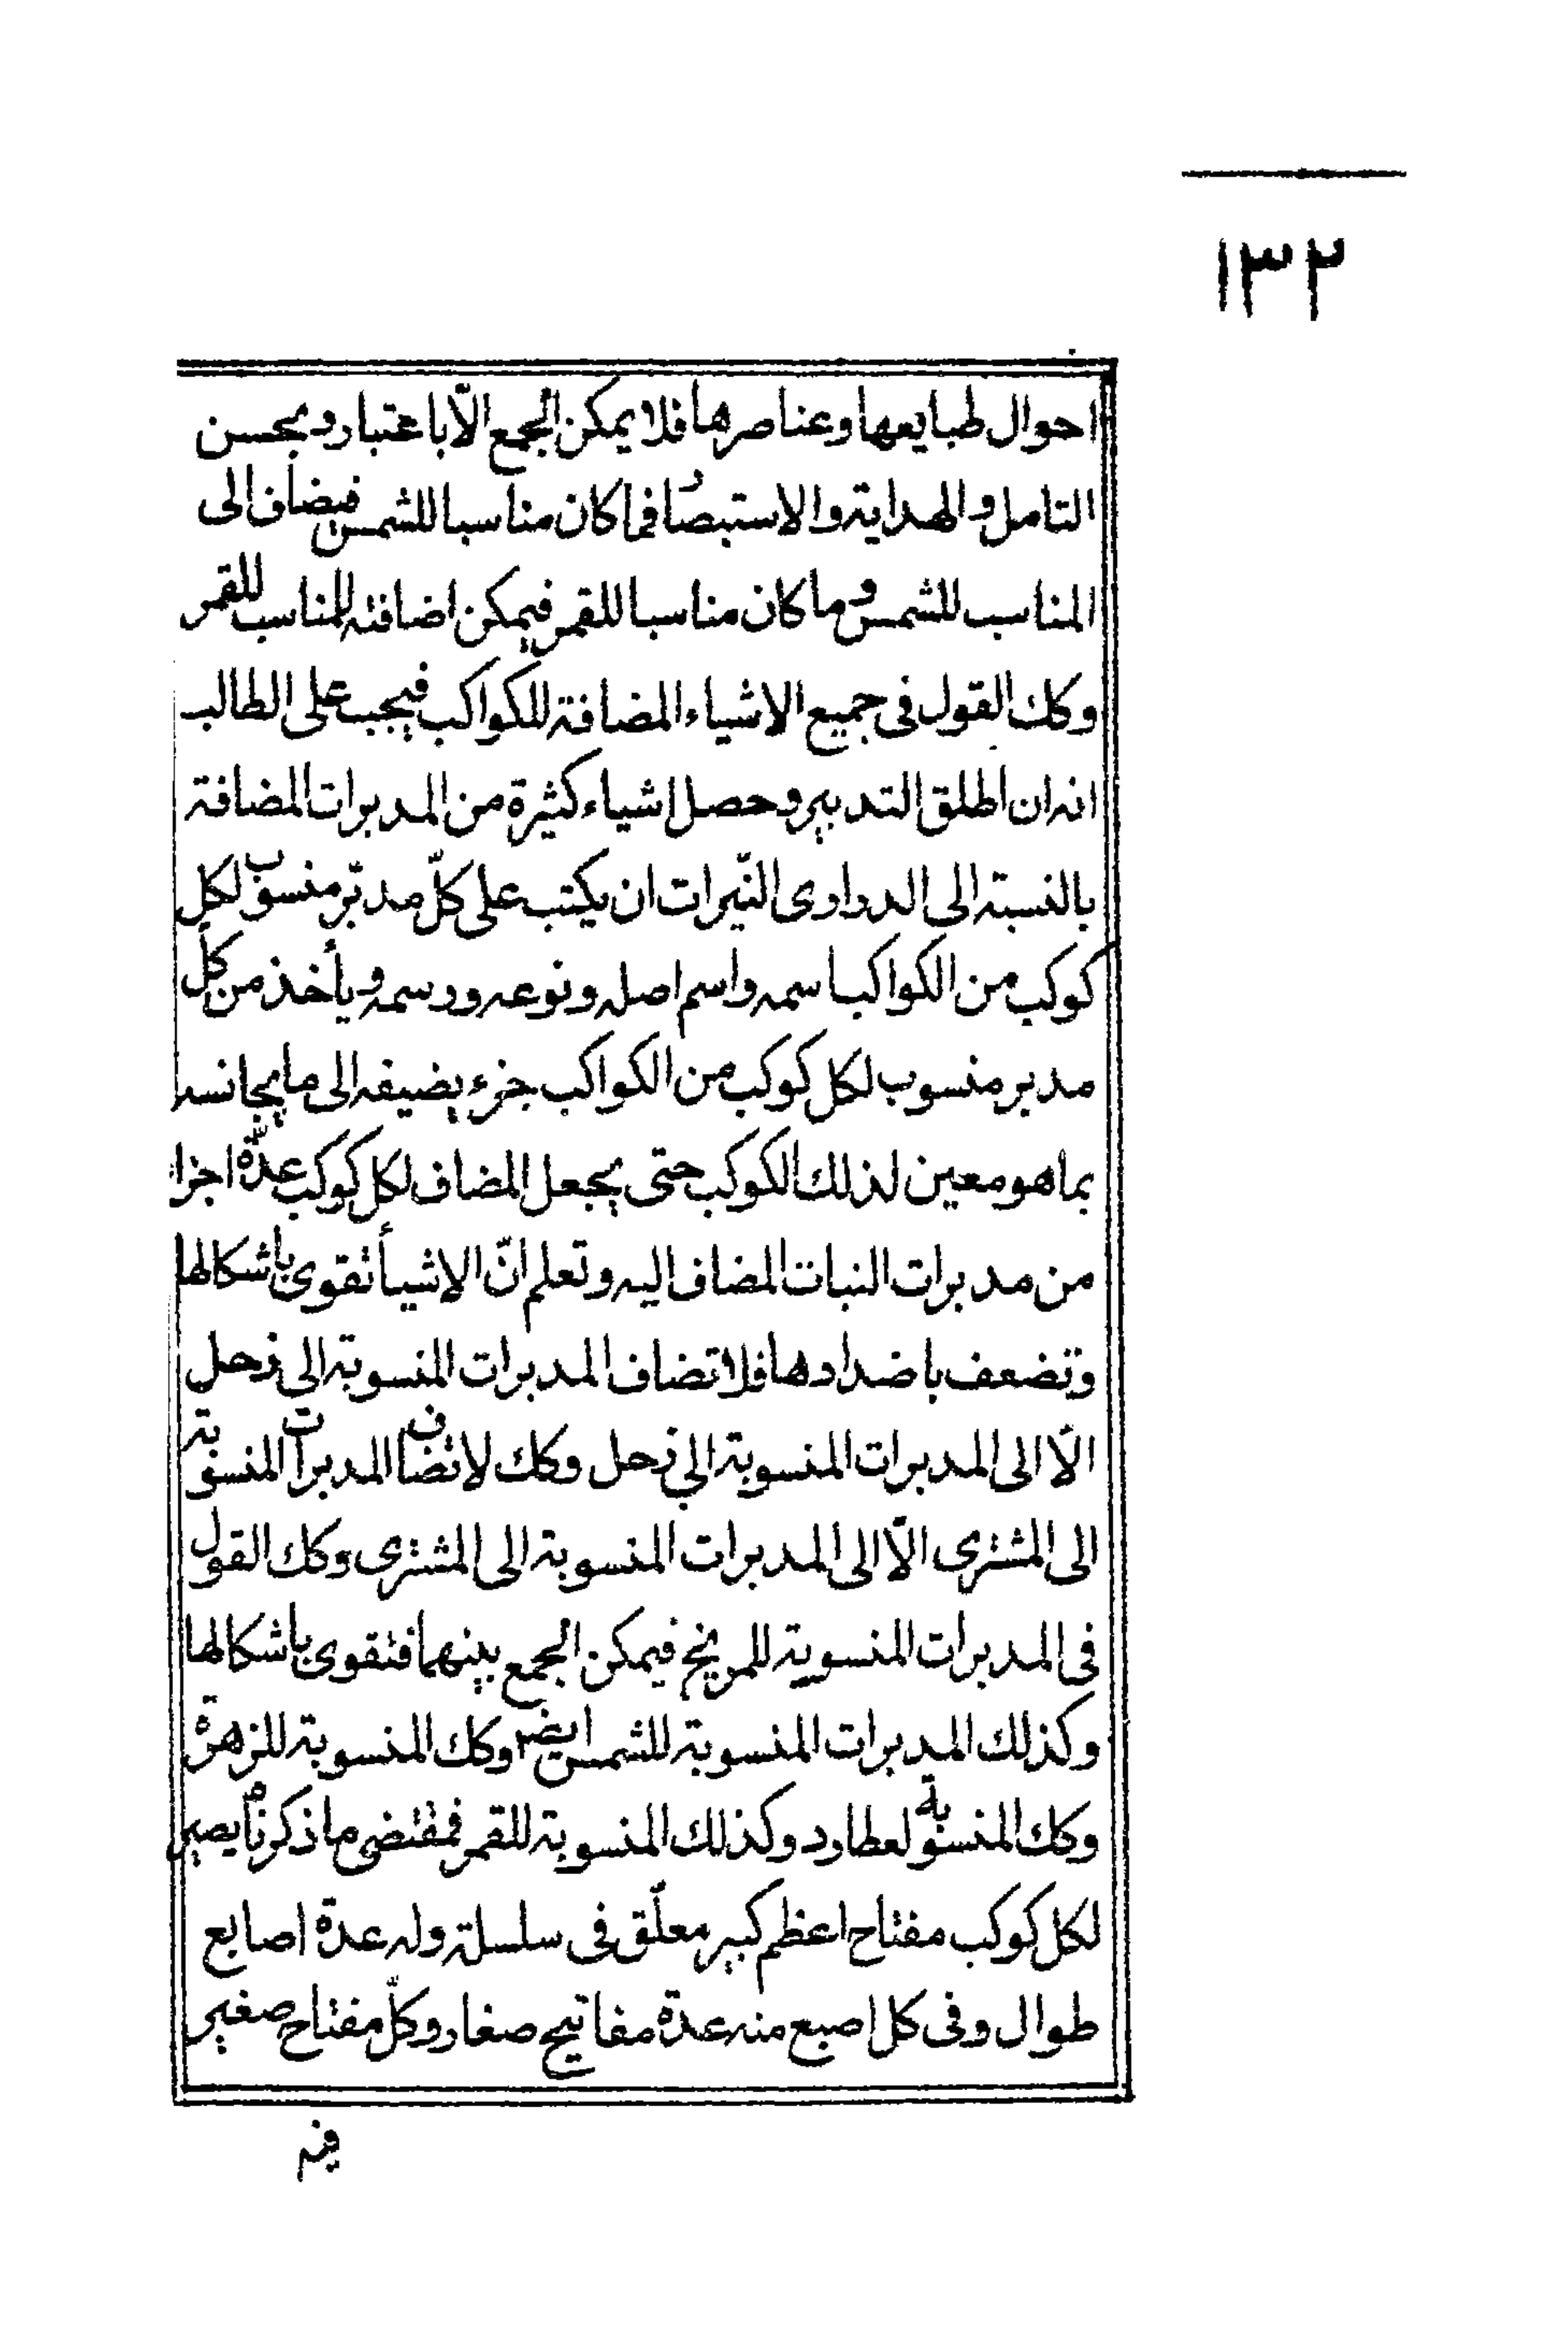 ١٣٢
احوال طبايعها وعناصرها فلا يمكن الجمع الّا باعتبار وبحسن
التامل والهداية والاستبصار فما كان مناسبا للشمس فيضاف الى
المناسب للشمس وما كان مناسبا للقمر فيمكن اضافته للمناسب للقمر
وكك القول فى جميع الاشياء المضافة للكواكب فيجب على الطالب
انه ان اطلق التدبير وحصل اشياء كثيرة من المدبرات المضافة
بالنسبة الى الدرارى النيّرات ان يكتب على كلّ مدبّر منسوب لكل
كوكب من الكواكب اسمه واسم اصله ونوعه ورسمه ويأخذ من كلّ
مدبر منسوب لكل كوكب من الكواكب جزء يضيفه الى ما يجانسه
بما هو معين لذلك الكوكب حتى يجعل المضاف لكل كوكب عدّة اجزاء
من مدبرات النبات المضاف اليه وتعلم انّ الاشيأ تقوى باشكالها
وتضعف باضدادها فلا تضاف المدبرات المنسوبة الى زحل
الّا الى المدبرات المنسوبة الى زحل وكك لا تضاف المدبرات المنسوبة
الى المشترى الّا الى المدبرات المنسوبة الى المشترى وكك القول
فى المدبرات المنسوبة للمريخ فيمكن الجمع بينهما فتقوى باشكالها
وكذلك المدبرات المنسوبة للشمس ايضا وكك المنسوبة للزهرة
وكك المنسوبة لعطارد وكذلك المنسوبة للقمر فمقتضى ما ذكرناه يصير
لكل كوكب مفتاح اعظم كبير معلّق فى سلسلة وله عدة اصابع
طوال وفى كل اصبع منه عدة مفاتيح صغار وكلّ مفتاح صغير
فيه